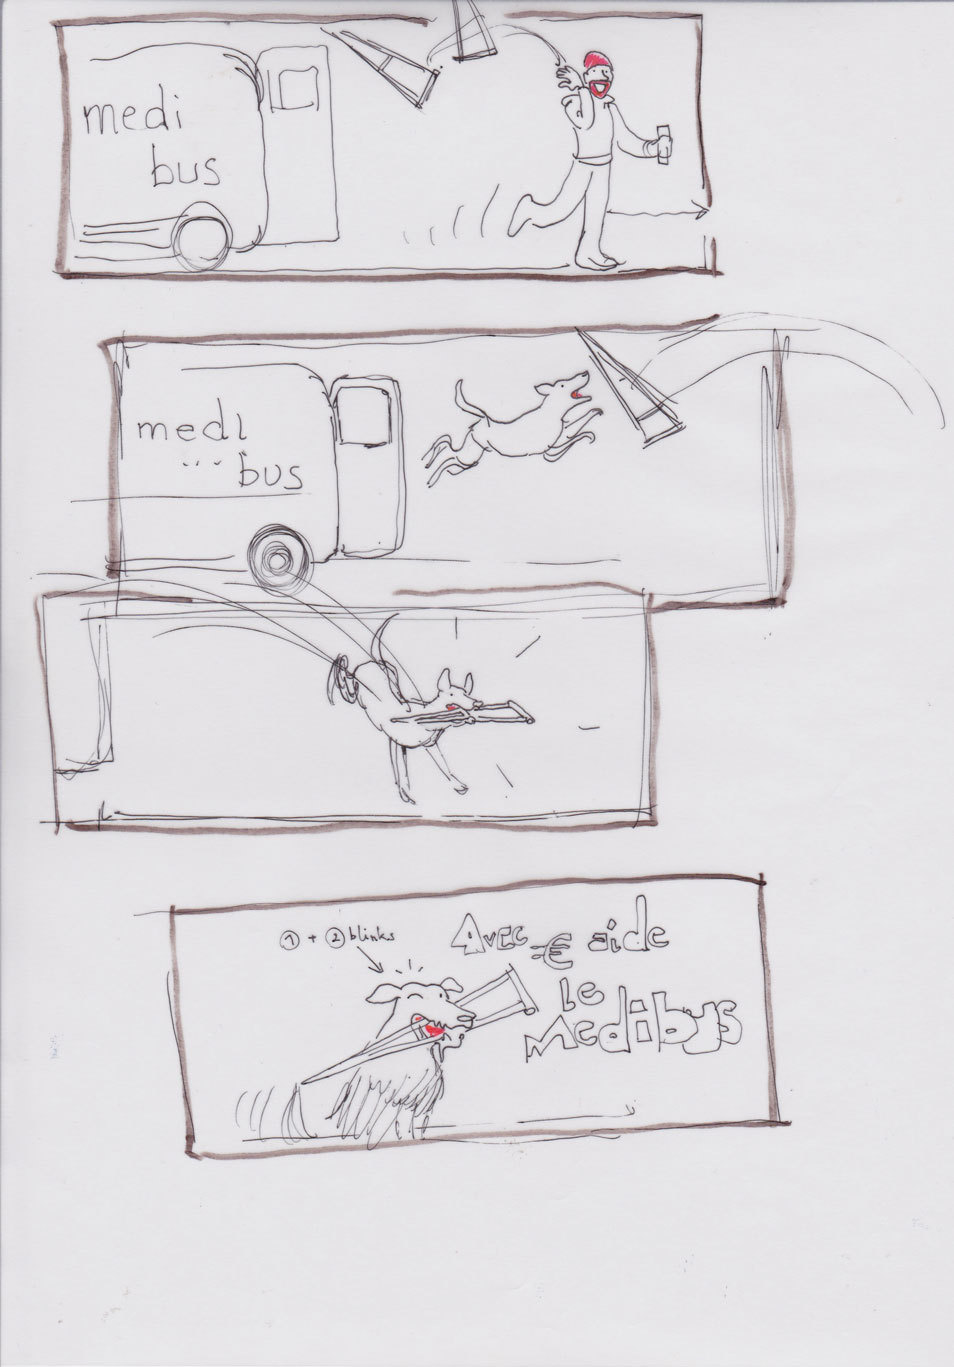 medi
bus
medi
bus
① + ② blinks
Avec -€ aide
le
Medibus